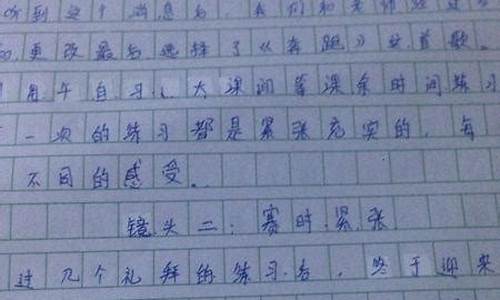 听到这个消息后，我们和老师经过
更改最后选择了《奔跑》这首歌。
用午自习、大课间等课余时间练习
一次的练习都是紧张充实的，每
不同的感受。
镜头二：赛时紧张
过几个礼拜的练习后，终于迎来